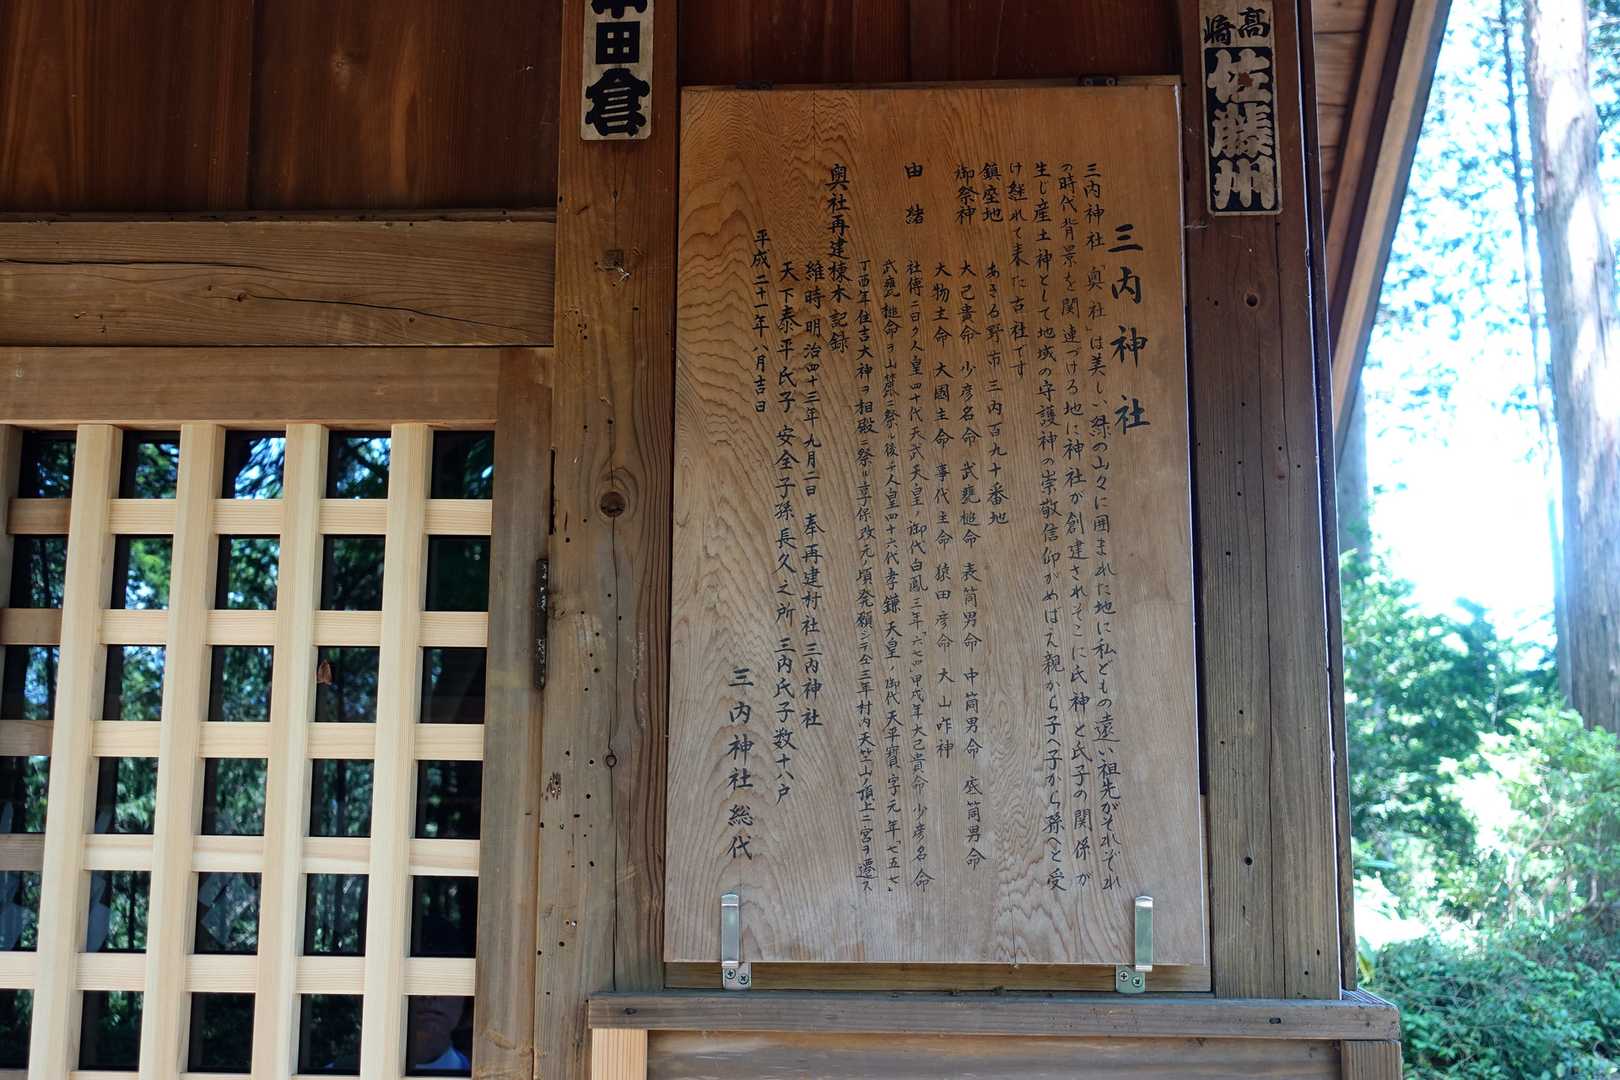 高崎
佐藤州
田倉
三内神社
三内神社「奥社」は美しい緑の山々に囲まれた地に私どもの遠い祖先がそれぞれ
の時代背景を関連づける地に神社が創建されそこに氏神と氏子の関係が
生じ産土神として地域の守護神の崇敬信仰がめばえ親から子へ子から孫へと受
け継れて来た古社です
鎮座地 あきる野市三内百九十番地
御祭神 大己貴命 少彦名命 武甕槌命 表筒男命 中筒男命 底筒男命
大物主命 大國主命 事代主命 猿田彦命 大山咋神
由緒 社傳ニ曰ク人皇四十代天武天皇ノ御代白鳳三年「六七四」甲戌年大己貴命少彦名命
武甕槌命ヲ山麓ニ祭ル後チ人皇四十六代孝謙天皇ノ御代天平寶字元年「七五七」
丁酉年住吉大神ヲ相殿ニ祭ル享保改元ノ頃発願シテ仝三年村内天竺山ノ頂上ニ宮ヲ遷ス
奥社再建棟木記録
維時明治四十三年九月二日 奉再建村社三内神社
天下泰平氏子安全子孫長久之所 三内氏子数十八戸
平成二十一年八月吉日
三内神社総代